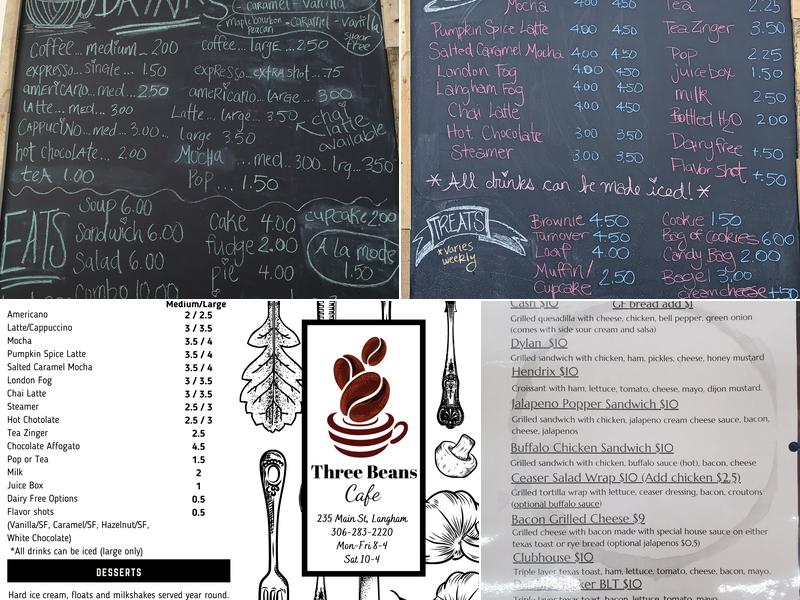 DRINKS
caramel - vanilla
maple bourbon - caramel - vanilla
pecan
sugar
free
coffee... medium... 2.00
coffee... large... 2.50
espresso... single... 1.50
espresso... extra shot... .75
americano... med... 2.50
americano... large... 3.00
latte... med... 3.00
Latte... large... 3.50
chai
latte
available
cappuccino... med... 3.00...
large 3.50
hot chocolate... 2.00
Mocha ...med... 300.. lrg... 350
tea 1.00
Pop ... 1.50
EATS
Soup 6.00
Sandwich 6.00
Salad 6.00
Combo 10.00
cake 4.00
fudge 2.00
pie 4.00
cupcake 2.00
A la mode
1.50
Mocha 4.00 4.50
Pumpkin Spice Latte 4.00 4.50
Salted Caramel Mocha 4.00 4.50
London Fog 4.00 4.50
Langham Fog 4.00 4.50
Chai Latte 4.00 4.50
Hot Chocolate 3.00 3.50
Steamer 3.00 3.50
Tea 2.25
Tea Zinger 3.50
Pop 2.25
juice box 1.50
milk 2.50
Bottled H2O 2.00
Dairy free +.50
Flavor shot +.50
* All drinks can be made iced! *
TREATS
*varies
weekly
Brownie 4.50
Turnover 4.50
Loaf 4.00
Muffin/
Cupcake 2.50
Cookie 1.50
Bag of Cookies 6.00
Candy Bag 2.00
Bagel 3.00
creamcheese +.50
Medium/Large
Americano 2 / 2.5
Latte/Cappuccino 3 / 3.5
Mocha 3.5 / 4
Pumpkin Spice Latte 3.5 / 4
Salted Caramel Mocha 3.5 / 4
London Fog 3 / 3.5
Chai Latte 3 / 3.5
Steamer 2.5 / 3
Hot Chotolate 2.5 / 3
Tea Zinger 2.5
Chocolate Affogato 4.5
Pop or Tea 1.5
Milk 2
Juice Box 1
Dairy Free Options 0.5
Flavor shots 0.5
(Vanilla/SF, Caramel/SF, Hazelnut/SF,
White Chocolate)
*All drinks can be iced (large only)
DESSERTS
Hard ice cream, floats and milkshakes served year round.
Three Beans
Cafe
235 Main St, Langham
306-283-2220
Mon-Fri 8-4
Sat 10-4
Cash $10 GF bread add $1
Grilled quesadilla with cheese, chicken, bell pepper, green onion
(comes with side sour cream and salsa)
Dylan $10
Grilled sandwich with chicken, ham, pickles, cheese, honey mustard
Hendrix $10
Croissant with ham, lettuce, tomato, cheese, mayo, dijon mustard.
Jalapeno Popper Sandwich $10
Grilled sandwich with chicken, jalapeno cream cheese sauce, bacon,
cheese, jalapenos
Buffalo Chicken Sandwich $10
Grilled sandwich with chicken, buffalo sauce (hot), bacon, cheese
Ceaser Salad Wrap $10 (Add chicken $2.5)
Grilled tortilla wrap with lettuce, ceaser dressing, bacon, croutons
(optional buffalo sauce)
Bacon Grilled Cheese $9
Grilled cheese with bacon made with special house sauce on either
texas toast or rye bread (optional jalapenos $0.5)
Clubhouse $10
Triple layer texas toast, ham, lettuce, tomato, cheese, bacon, mayo.
BLT $10
Triple layer texas toast, bacon, lettuce, tomato, mayo